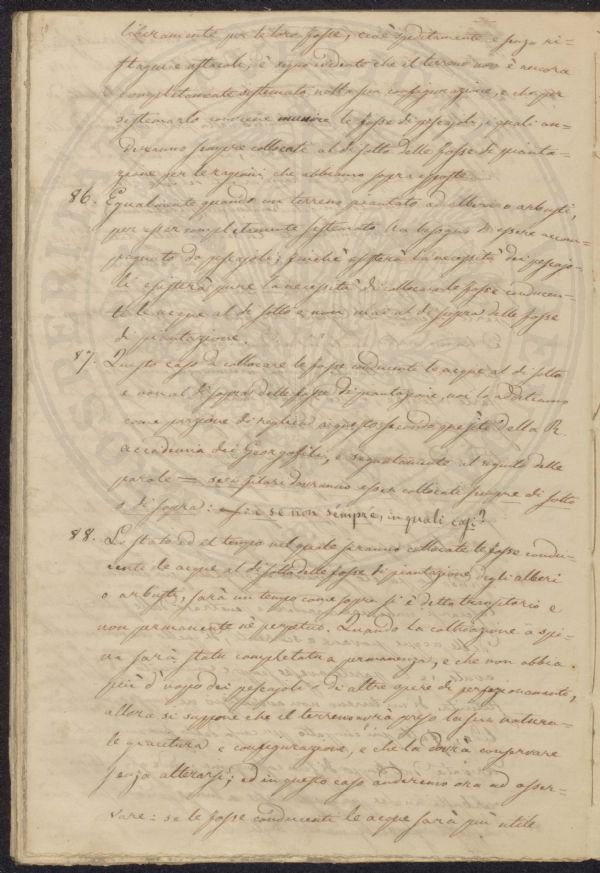 liberamente per le loro fosse, cioè speditamente e senza ri=
stagni e ostacoli, è segno evidente che il terreno non è ancora
completamente sistemato nella sua configurazione, e che per
sistemarlo conviene munire le fosse di pescajoli, i quali an=
dranno sempre collocati al di sotto delle fosse di pianta=
zione per le ragioni che abbiamo sopra esposte.
86. Egualmente quando un terreno piantato ad alberi o arbusti,
per esser completamente sistemato ha bisogno di essere accom=
pagnato da pescajoli; finchè esisterà la necessità dei pescajo=
li esisterà pure la necessità di collocare le fosse conducen=
ti le acque al di sotto e non mai al di sopra delle fosse
di piantazione.
87. Questo caso di collocare le fosse conducenti le acque al di sotto
e non al di sopra delle fosse di piantazione, noi lo additiamo
come porzione di replica a questo secondo quesito della R.
Accademia dei Georgofili, e segnatamente al seguito delle
parole = se i filari dovranno esser collocati sempre di sotto
o di sopra: e se non sempre, in quali casi?
88. Lo stato ed il tempo nel quale saranno collocate le fosse condu=
centi le acque al di sotto delle fosse di piantazione degli alberi
o arbusti, sarà un tempo come sopra si è detto transitorio e
non permanente nè perpetuo. Quando la coltivazione a spi=
na sarà stata completata a permanenza, e che non abbia
più d'uopo dei pescajoli o di altre opere di perfezionamento,
allora si suppone che il terreno avrà preso la sua natura=
le giacitura e configurazione, e che la dovrà conservare
senza alterarsi; ed in questo caso anderemo ora ad osser=
vare: se le fosse conducenti le acque sarà più utile